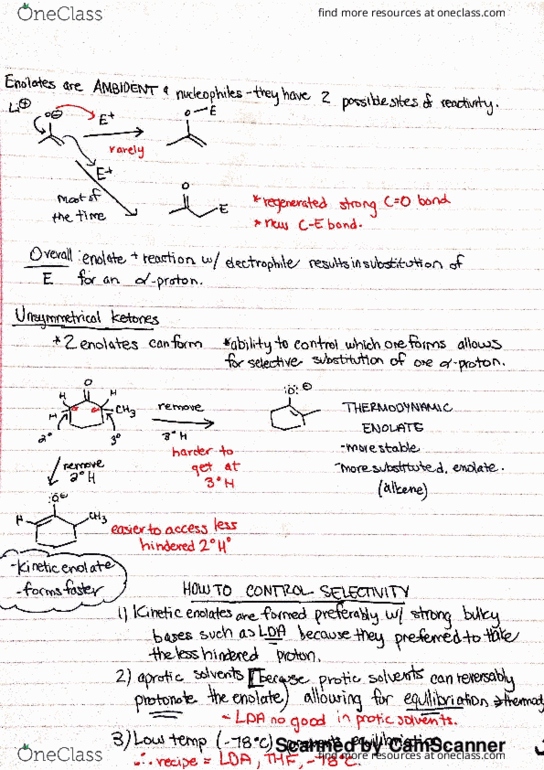 OneClass
find more resources at oneclass.com
Enolates are AMBIDENT nucleophiles - they have 2 possible sites of reactivity.
Li⊕
O⊖
E+
O-E
rarely
E+
most of
the time
O
E
*regenerated strong C=O bond
*new C-E bond.
Overall: enolate + reaction w/ electrophile results in substitution of
E for an α-proton.
Unsymmetrical ketones
*2 enolates can form
*ability to control which one forms allows
for selective substitution of one α-proton.
O
H
H
H
CH3
2°
3°
remove
3° H
harder to
get at
3° H
:O: ⊖
THERMODYNAMIC
ENOLATE
-more stable
-more substituted, enolate.
(alkene)
remove
2° H
:O⊖
H
CH3
easier to access less
hindered 2° H
-kinetic enolate
-forms faster
HOW TO CONTROL SELECTIVITY
1) Kinetic enolates are formed preferably w/ strong bulky
bases such as LDA because they preferred to take
the less hindered proton.
2) aprotic solvents [because protic solvents can reversably
protonate the enolate) allowing for equilibriation
- LDA no good in protic solvents.
3) Low temp (-78°C)
Scanned by CamScanner
∴ recipe = LDA, THF, -78°C.
OneClass
find more resources at oneclass.com